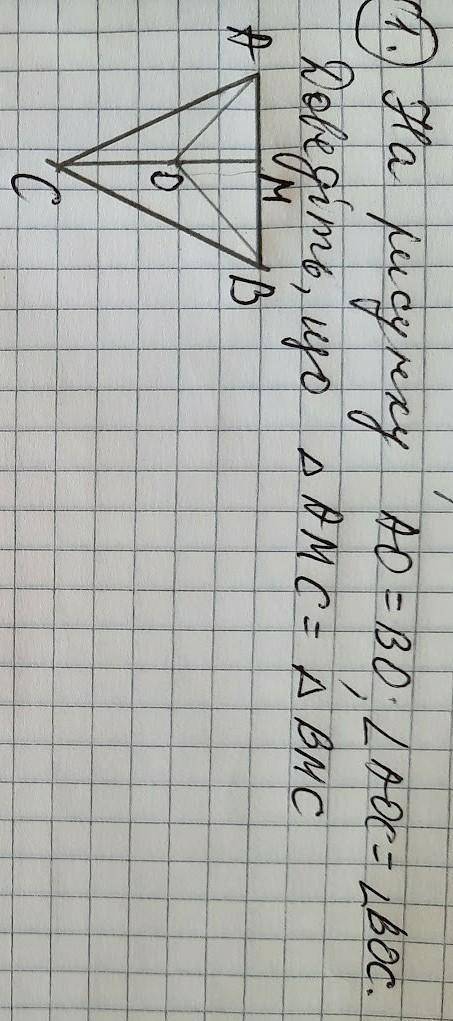 1. На рисунку AO = BO, ∠AOC = ∠BOC.
Доведіть, що △AMC = △BMC
A
M
B
O
C